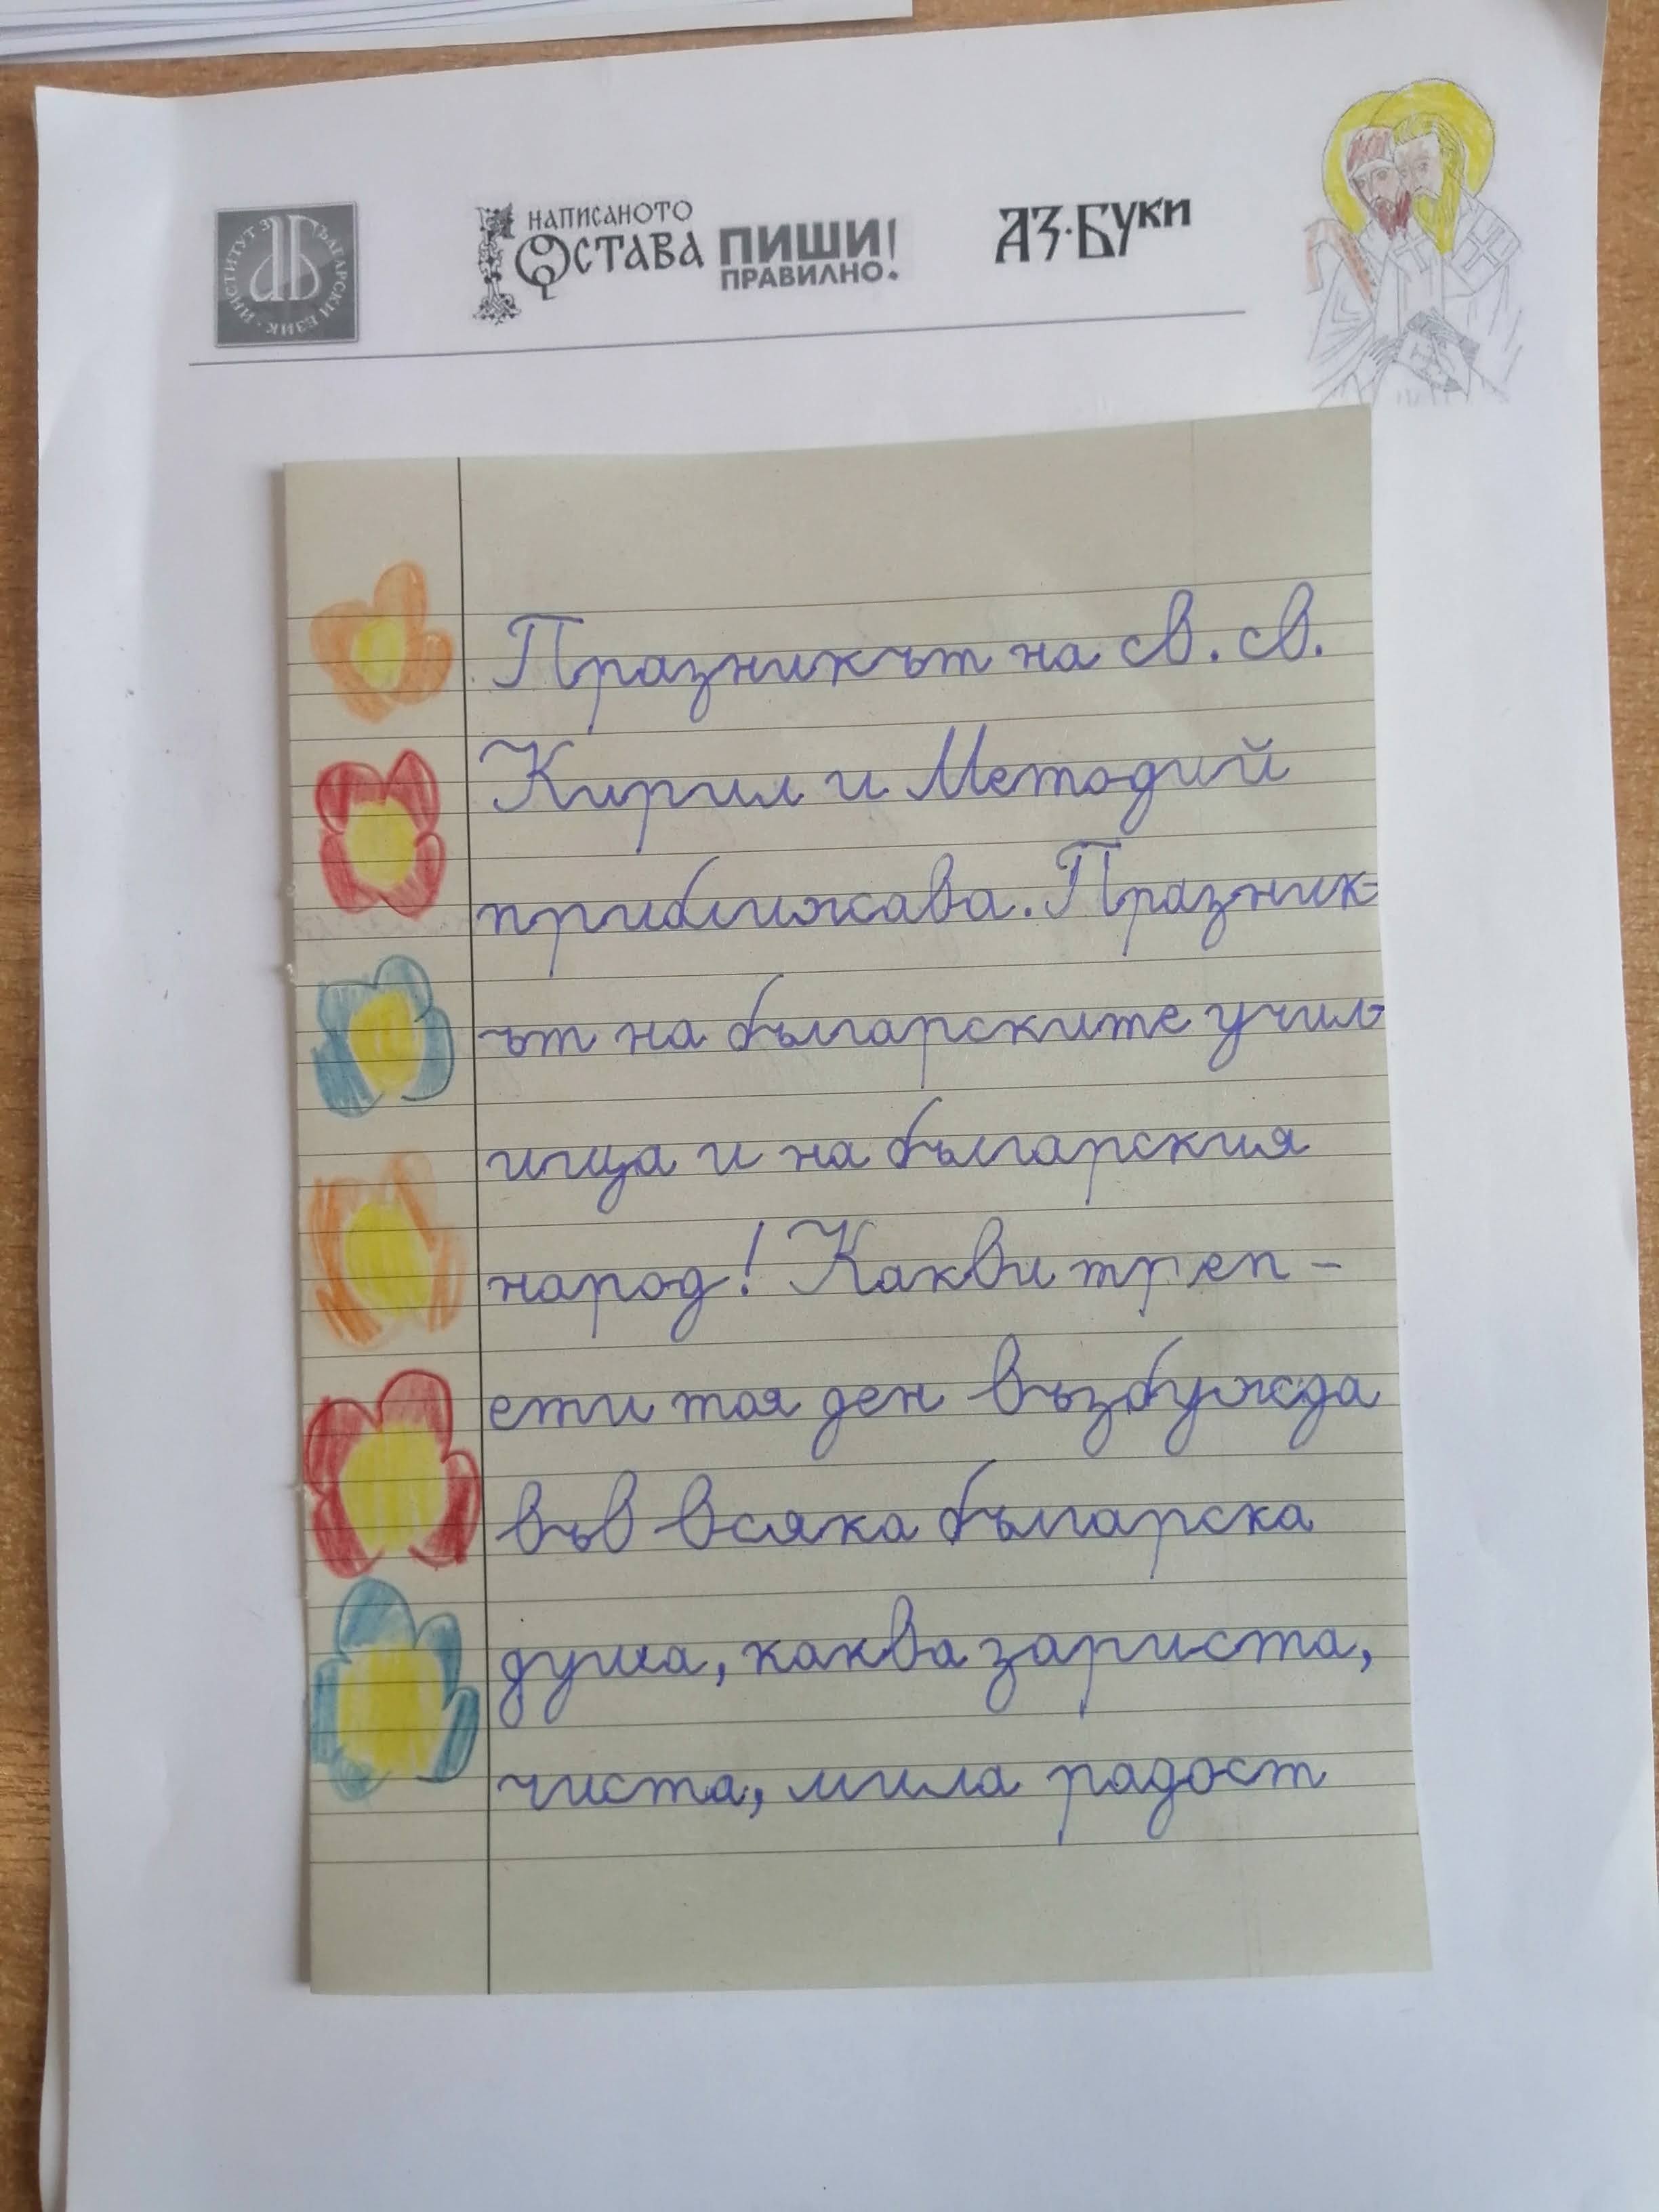 ИНСТИТУТ ЗА БЪЛГАРСКИ ЕЗИК
НАПИСАНОТО
ОСТАВА
ПИШИ!
ПРАВИЛНО.
АЗ·БУКИ
Празникът на св. св.
Кирил и Методий
приближава. Празник-
ът на българските учил-
ища и на българския
народ! Какви треп-
ети тоя ден възбужда
във всяка българска
душа, каква зариста,
чиста, мила радост